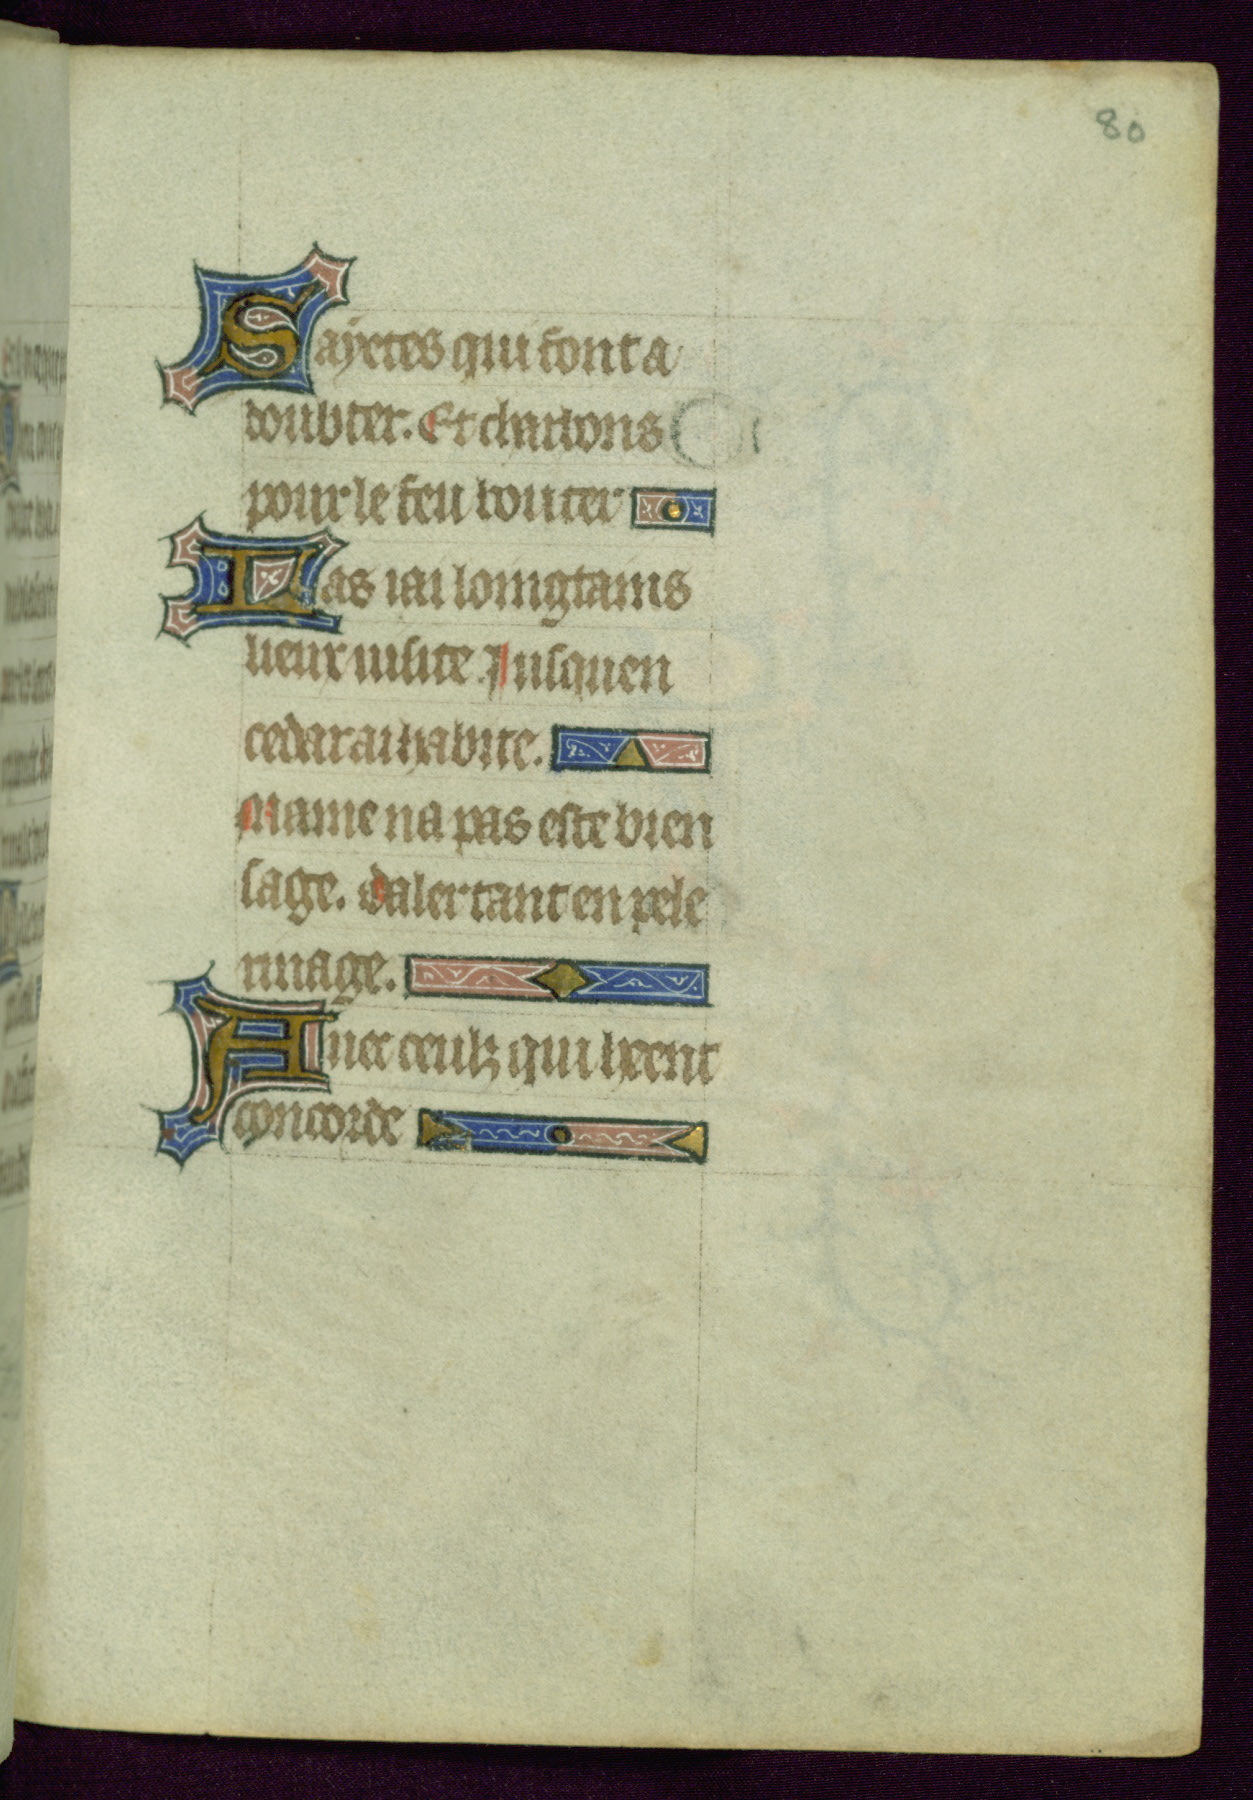 80
Sayetes qui font a
doubter. Et charbons
pour le feu bouter
Las iai loingtains
lieux uisite. Iusquen
cedar ai habite.
Mame na pas este bien
sage. daler tant en pele
rinage.
Auec ceulz qui heent
concorde